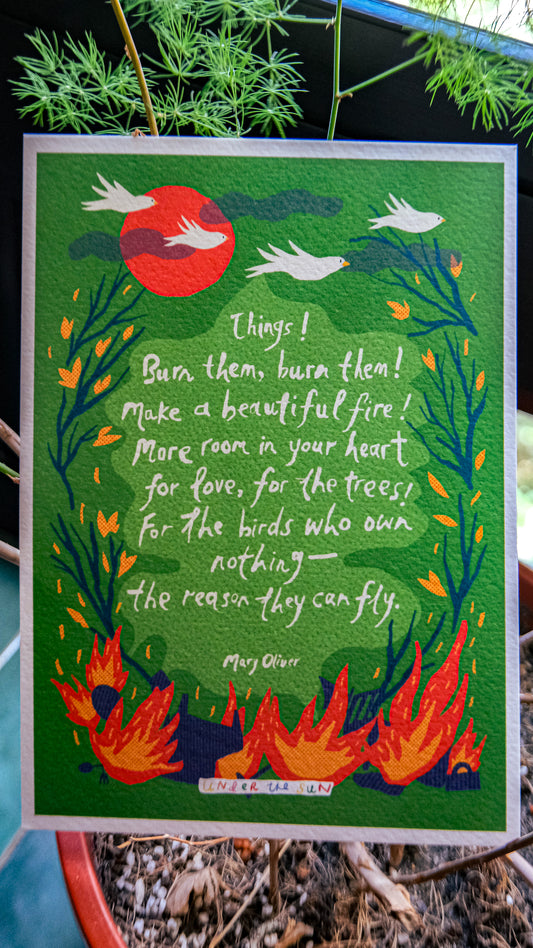 Things!
Burn them, burn them!
Make a beautiful fire!
More room in your heart
for love, for the trees!
For the birds who own
nothing—
the reason they can fly.
Mary Oliver
UNDER the SUN